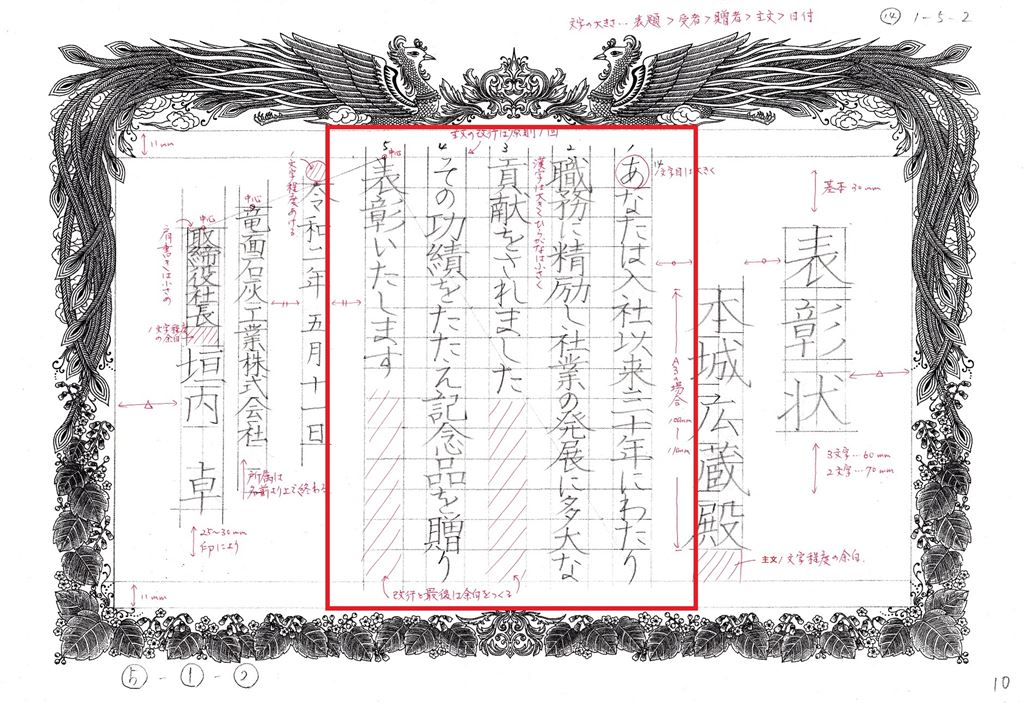 文字の大きさ… 表題>受者>贈者>主文>日付
⑭ 1-5-2
表彰状
本城広蔵殿
あなたは入社以来三十年にわたり
職務に精励し社業の発展に多大な
貢献をされました
その功績をたたえ記念品を贈り
表彰いたします
令和二年五月十一日
竜画石灰工業株式会社
取締役社長 垣内 卓
基本30mm
3文字…60mm
2文字…70mm
主文1文字程度の余白
A3の場合
100mm
110mm
1文字目は大きく
主文の改行は原則1回
1
2
3
4
5
漢字は大きくひらがなは小さく
中心
改行と最後は余白をつくる
1文字程度あける
中心
所属は
名前より上で終わる
中心
肩書きは小さめ
1文字程度
の余白
25~30mm
印により
11mm
11mm
5-1-2
10